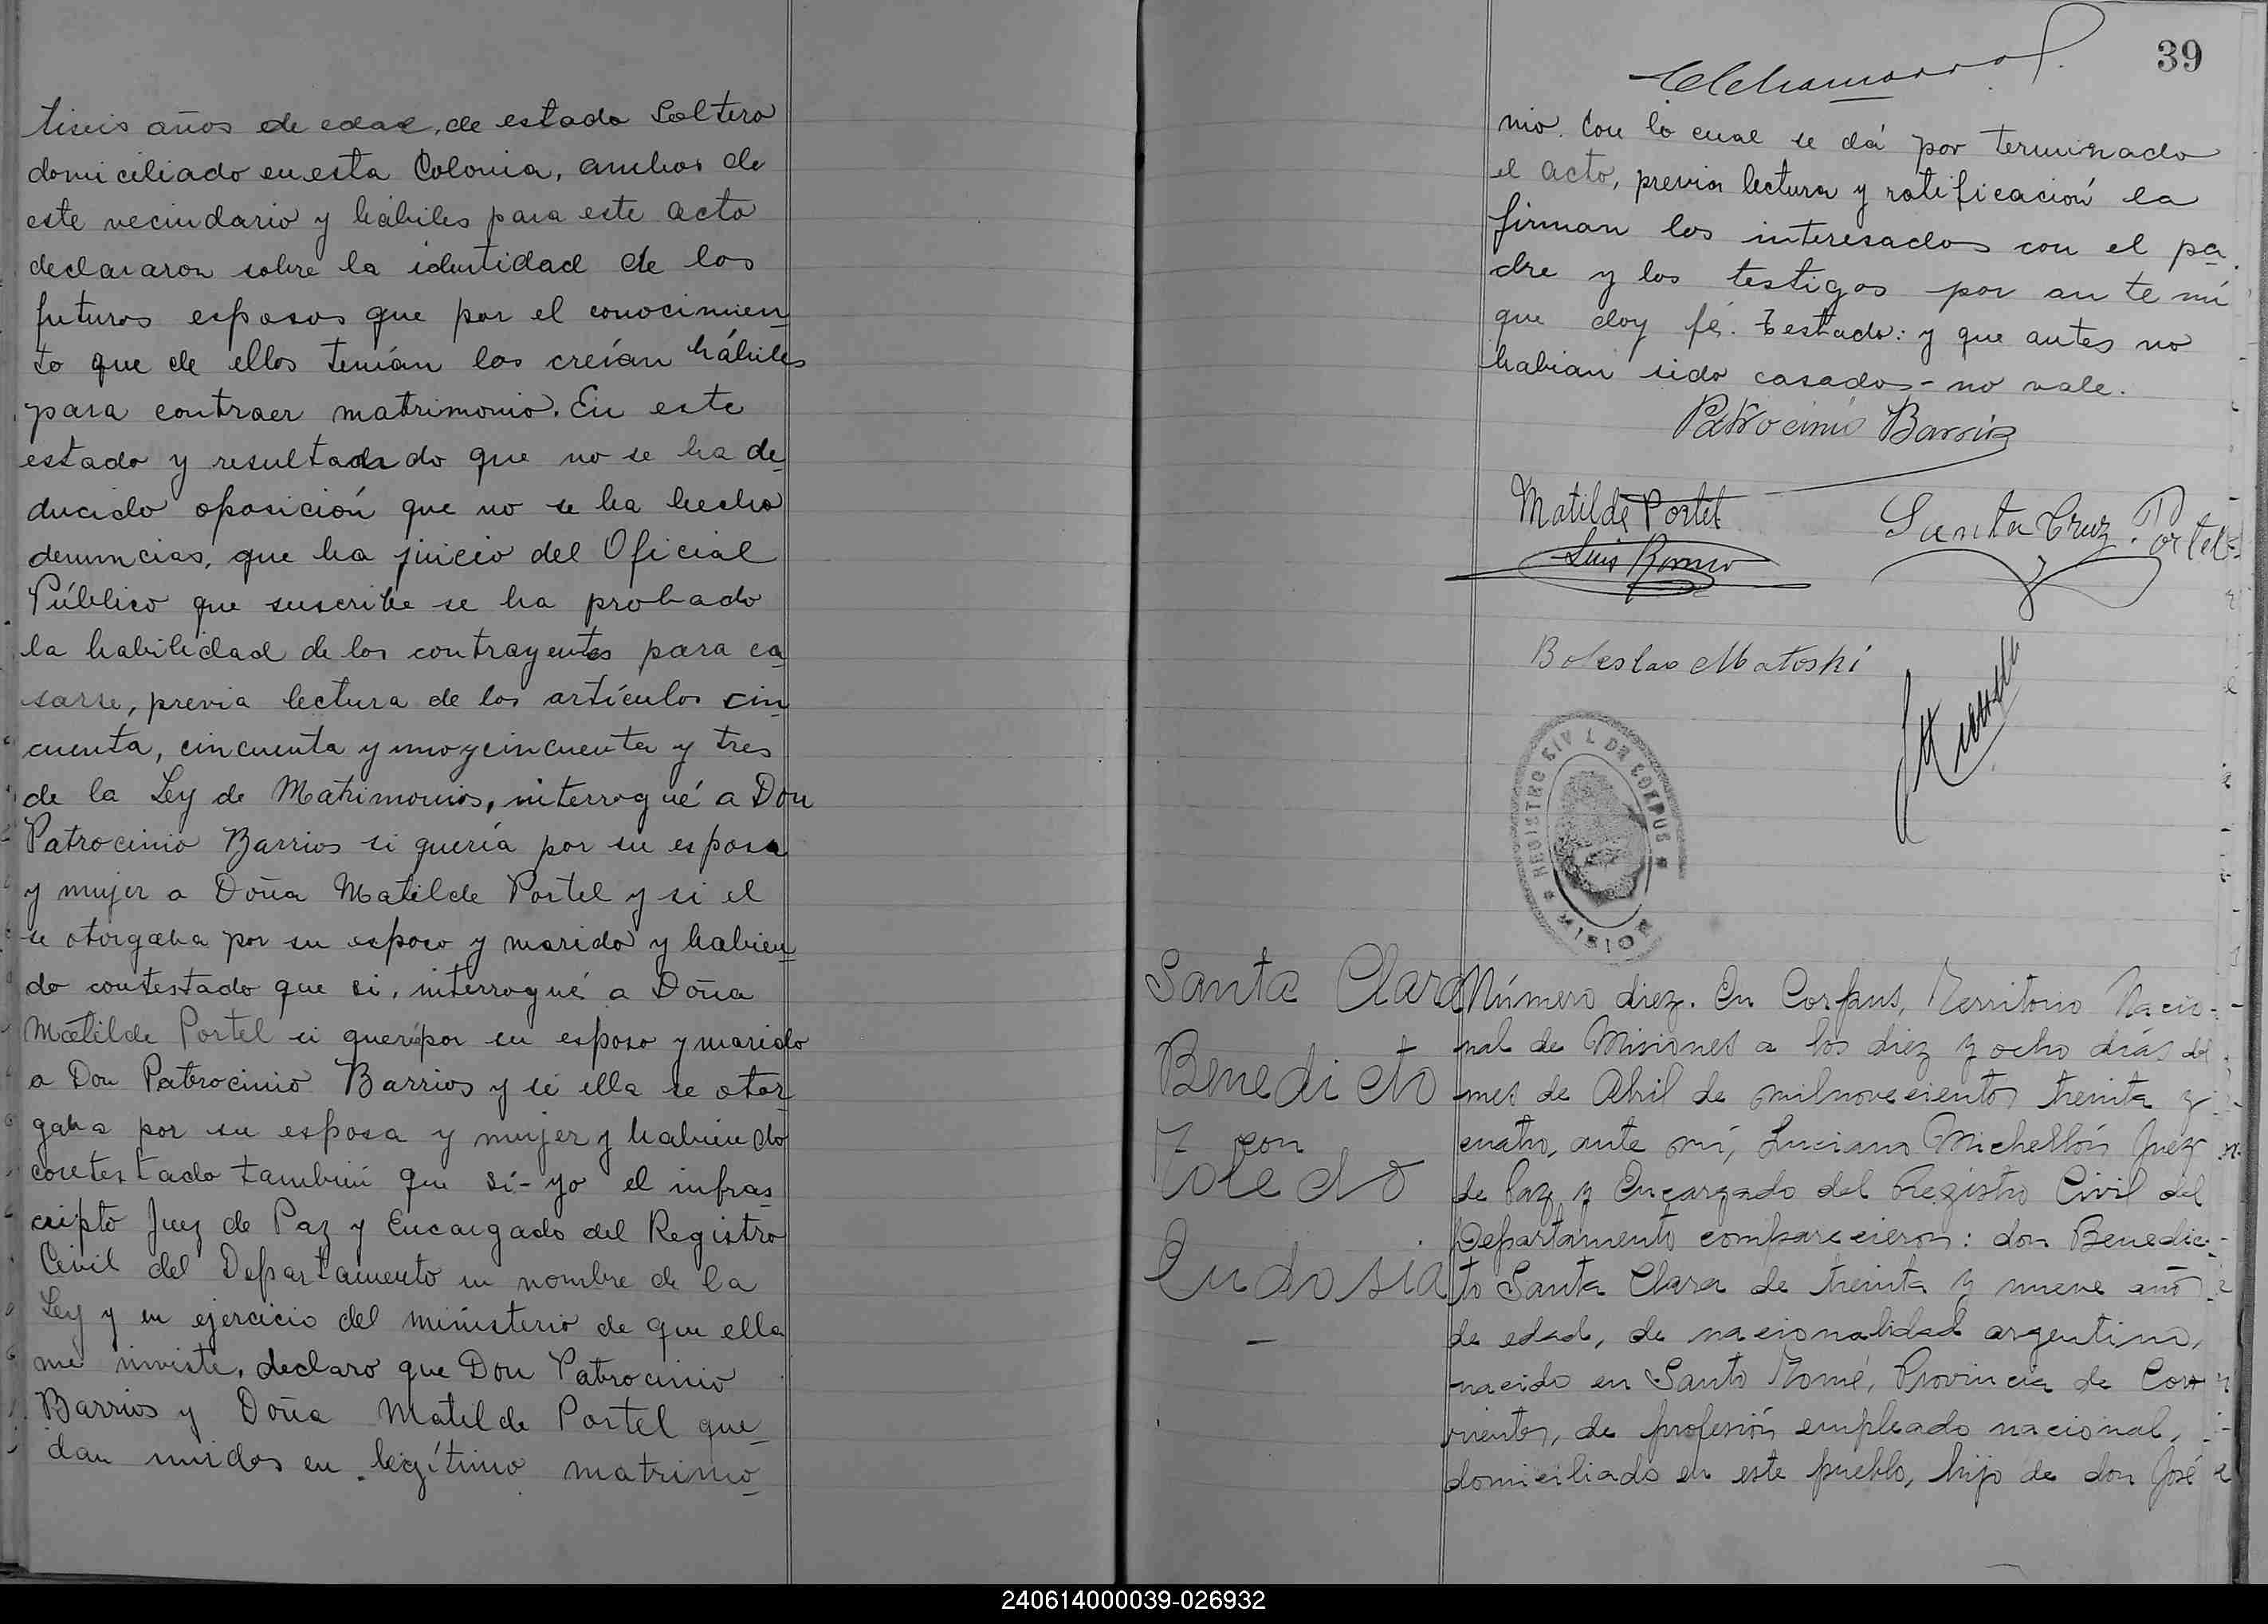 tiseis años de edad, de estado Soltero
domiciliado en esta Colonia, ambos de
este vecindario y hábiles para este acto
declararon sobre la identidad de los
futuros esposos que por el conocimien
to que de ellos tenían los creían hábiles
para contraer matrimonio. En este
estado y resultadado que no se ha de
ducido oposición que no se ha hecho
denuncias, que ha juicio del Oficial
Público que suscribe se ha probado
la habilidad de los contrayentes para ca
sarse, previa lectura de los artículos cin
cuenta, cincuenta y uno y cincuenta y tres
de la Ley de Matrimonios, interrogué a Don
Patrocinio Barrios si quería por su esposa
y mujer a Doña Matilde Portel y si el
se otorgaba por su esposo y marido y habien
do contestado que si, interrogué a Doña
Matilde Portel si quería por su esposo y marido
a Don Patrocinio Barrios y si ella se otor
gaba por su esposa y mujer y habiendo
contestado también que sí - yo el infras
cripto Juez de Paz y Encargado del Registro
Civil del Departamento en nombre de la
Ley y en ejercicio del ministerio de que ella
me inviste, declaro que Don Patrocinio
Barrios y Doña Matilde Portel que
dan unidos en legítimo matrimo
39
nio. Con lo cual se dá por terminado
el acto, previa lectura y ratificación la
firman los interesados con el pa
dre y los testigos por ante mí
que doy fé. Testado: y que antes no
habian sido casados - no vale.
Patrocinio Barrios
Matilde Portel
Santa Cruz Portel
Luis Romero
Boleslao Matoski
REGISTRO CIVIL DE CORPUS
MISIONES
Santa Clara
Benedicto
con
Toledo
Eudosia
Número diez. En Corpus, Territorio Nacio-
nal de Misiones a los diez y ocho días del
mes de Abril de mil novecientos treinta y
cuatro, ante mí, Luciano Michellón Juez
de Paz y Encargado del Registro Civil del
Departamento comparecieron: don Benedic-
to Santa Clara de treinta y nueve años
de edad, de nacionalidad argentina,
nacido en Santo Tomé, Provincia de Corr
rientes, de profesión empleado nacional,
domiciliado en este pueblo, hijo de don José
240614000039-026932